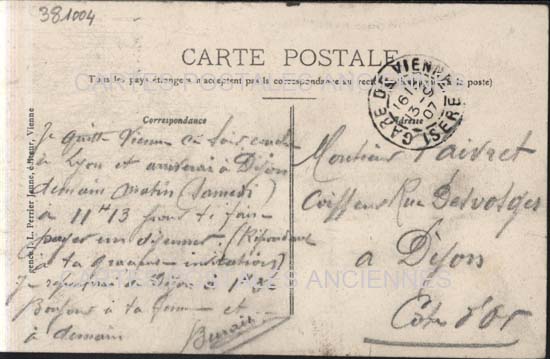 381004
CARTE POSTALE
Tous les pays étrangers n'acceptent pas la correspondance au recto
la poste)
Correspondance
Adresse
GARE DE VIENNE
ISERE
16
07
Perrier Jeune, éditeur, Vienne
Je quitte Vienne ce soir
à Lyon et arriverai à Dijon
demain matin (Samedi)
à 11 H 13 pour te faire
payer un déjeuner. (Réponds
à ta gracieuse invitation)
Je repartirai de Dijon à
Bonjour à ta femme et
à demain
Monsieur
Coiffeur Rue Devosges
à Dijon
Côte d'Or
CARTES POSTALES ANCIENNES
CARTES POSTALES ANCIENNES